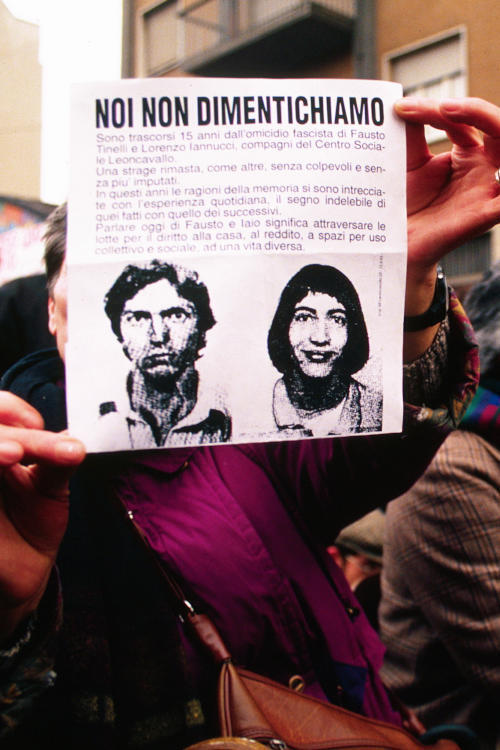 NOI NON DIMENTICHIAMO
Sono trascorsi 15 anni dall'omicidio fascista di Fausto
Tinelli e Lorenzo Iannucci, compagni del Centro Socia-
le Leoncavallo.
Una strage rimasta, come altre, senza colpevoli e sen-
za piu' imputati.
In questi anni le ragioni della memoria si sono intreccia-
te con l'esperienza quotidiana, il segno indelebile di
quei fatti con quello dei successivi.
Parlare oggi di Fausto e Iaio significa attraversare le
lotte per il diritto alla casa, al reddito, a spazi per uso
collettivo e sociale, ad una vita diversa.